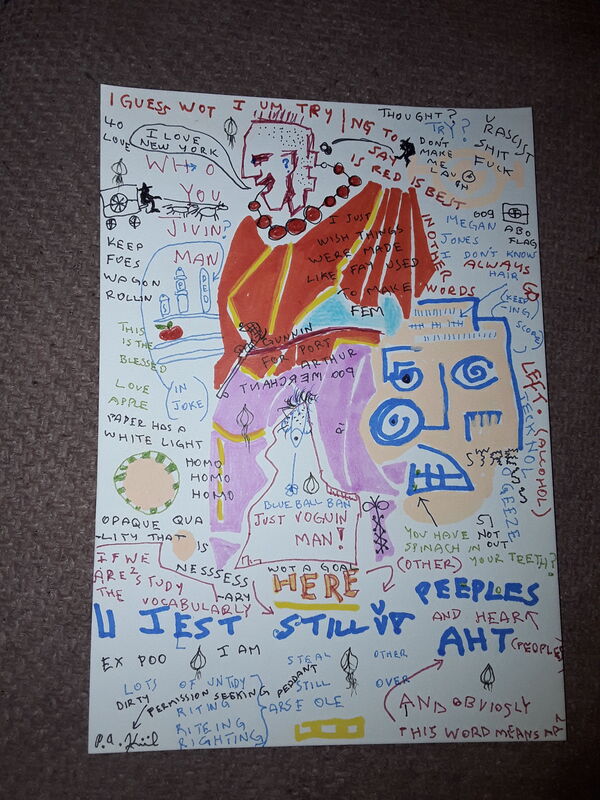 I GUESS WOT I UM, TRYING TO
SAY
IS RED IS BEST
IN OTHER
WORDS
GO
LEFT.
(ALCOHOL)
THOUGHT?
TRY?
DON'T
MAKE
ME
LAUGH
U
RASCIST
SHIT
FUCK
40
LOVE
I LOVE
NEW YORK
?
WHO
YOU
JIVIN?
MAN
KEEP
FUES
WAGON
ROLLIN
THIS
IS THE
BLESSED
LOVE
APPLE
IN
JOKE
I JUST
WISH THINGS
WERE MADE
LIKE FAY USED
TO MAKE
FEM
GUNNIN
FOR PORT
ARTHUR
POO MERCHANT
609
ABO
FLAG
MEGAN
JONES
I DON'T KNOW
ALWAYS
HAIR
(KEEP
ING
SCORE)
TECKNOL
OGEEZE
PAPER HAS A
WHITE LIGHT
HOMO
HOMO
HOMO
OPAQUE QUA
LITY THAT
IS
NESSSESS
ARY
IF WE
ARE 2 STUDY
THE VOCABULARLY
BLUE BALL BAN
JUST VOGUIN
MAN!
WOT A GOAL
HERE
YOU HAVE NOT
SPINACH IN OUT
YOUR TEETH?
(OTHER)
PEEPLES
U JEST STILL UP
AND HEART
AHT (PEOPLE)
EX POO
I AM
LOTS OF UNTIDY
DIRTY PERMISSION SEEKING PEDDANT
RITING
RITEING
RIGHTING
STEAL OTHER
STILL OVER
ARSE OLE
AND OBVIOSLY
THIS WORD MEANS